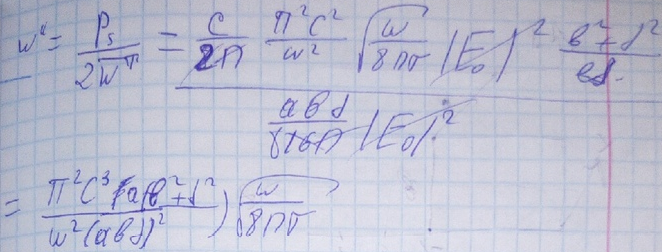 w" = P_s / 2W^T = c/2π π²c²/w² √(w/8πσ) |E₀|² (b²+d²)/bd
abd/16π |E₀|²
= π²c³ a(b²+d²) / w²(abd)² √(w/8πσ)